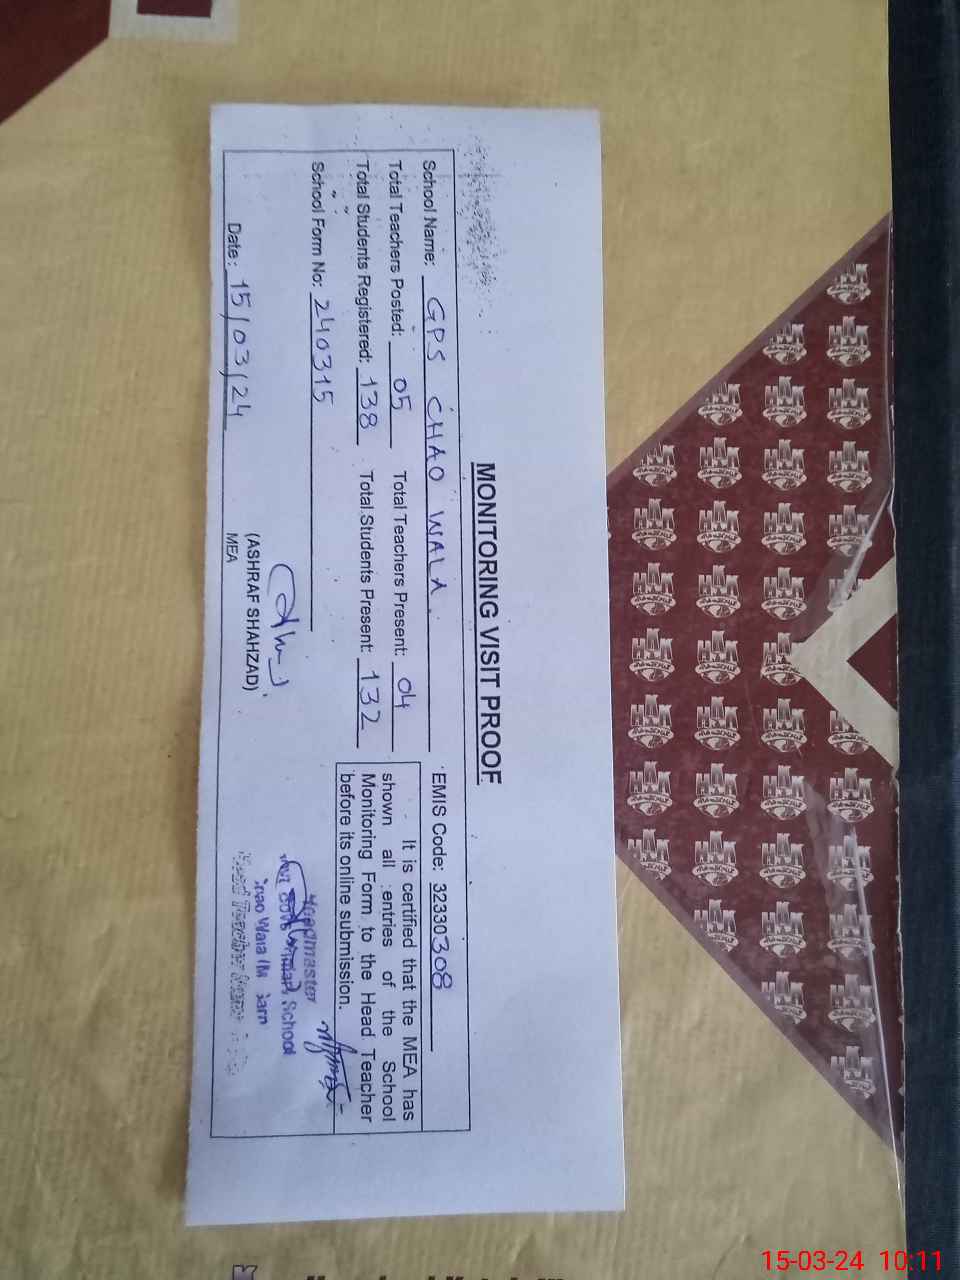 MONITORING VISIT PROOF
School Name: GPS CHAO WALA EMIS Code: 32330308
Total Teachers Posted: 05 Total Teachers Present: 04
Total Students Registered: 138 Total Students Present: 132
School Form No: 240315
It is certified that the MEA has
shown all entries of the School
Monitoring Form to the Head Teacher
before its online submission.
(ASHRAF SHAHZAD)
MEA
Date: 15/03/24
Headmaster
School
Wala
Head Teacher
15-03-24 10:11